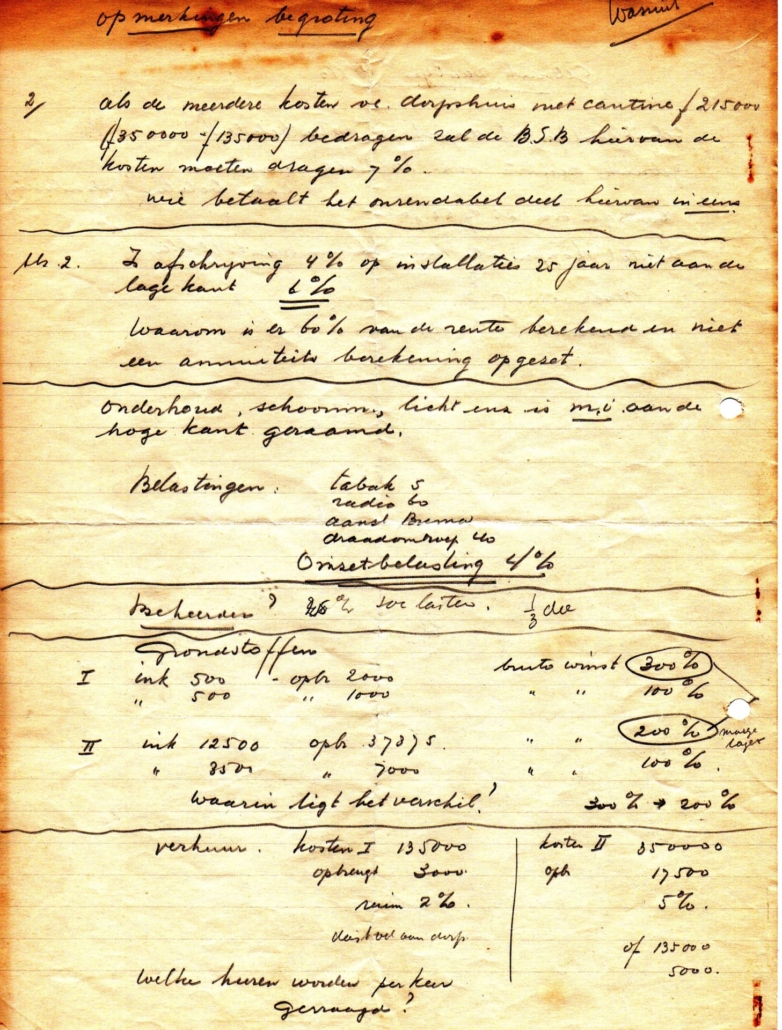 opmerkingen begroting
2/ als de meerdere kosten v.e. dorpshuis met cantine ƒ 215000
(ƒ350000 - ƒ135000) bedragen zal de B.S.B hiervan de
kosten moeten dragen 7%.
wie betaalt het onrendabel deel hiervan ineens
2. Is afschryving 4% op installaties 25 jaar niet aan de
lage kant 6%
Waarom is er 60% van de rente berekend en niet
een annuiteits berekening opgezet.
Onderhoud, schoonm., licht enz is m.i. aan de
hoge kant geraamd.
Belastingen: tabak 5
radio 60
aansl Buma
draadomroep 40
Omzetbelasting 4%
Beheerder? % soc lasten. 1/3 die
Grondstoffen
I ink 500 - opbr 2000 bruto winst 300%
" 500 " 1000 " " 100%
II ink 12500 opbr 37875. " " 200% marge lager
" 3500 " 7000 " " 100%.
waarin ligt het verschil? 300% → 200%
verhuur. kosten I 135000 kosten II 350000
opbrengt 3000 opb 17500
ruim 2%. 5%.
aan dorp of 135000
5000.
Welke huren worden per keer
gevraagd?